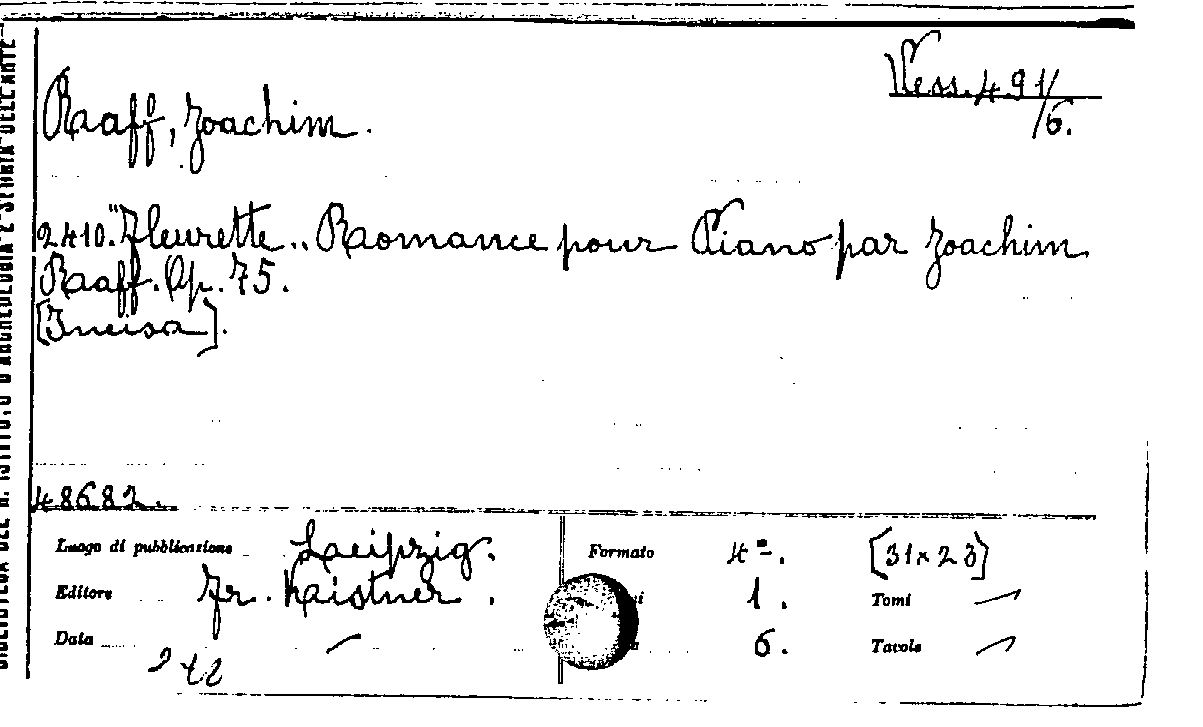 Vess. 491/6.
Raff, Joachim.
2410. "Fleurette.. Romance pour Piano par Joachim
Raff. Op. 75.
[Incisa].
48682.
Luogo di pubblicazione Laeipzig.
Formato 4º. [31×23]
Editore Fr. Kaistner.
1. Tomi
Data
6. Tavole
BIBLIOTECA DEL R. ISTITUTO D'ARCHEOLOGIA E STORIA DELL'ARTE